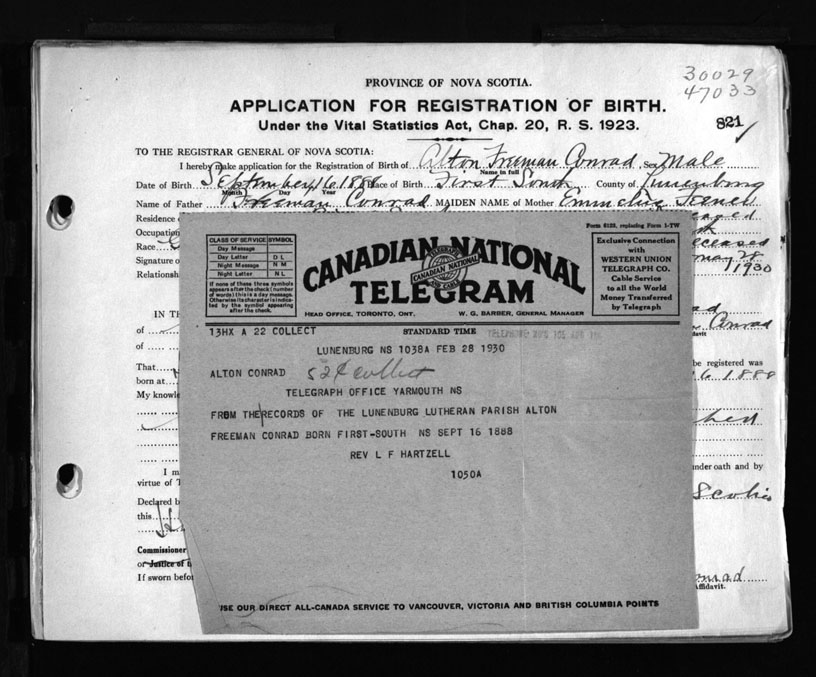 30029
47033
PROVINCE OF NOVA SCOTIA.
APPLICATION FOR REGISTRATION OF BIRTH.
821
Under the Vital Statistics Act, Chap. 20, R. S. 1923.
TO THE REGISTRAR GENERAL OF NOVA SCOTIA:
I hereby make application for the Registration of Birth of Alton Freeman Conrad Sex Male
Name in full
Date of Birth September 16 1888 Place of Birth First South County of Lunenburg
Month Day Year
Name of Father Freeman Conrad MAIDEN NAME of Mother
Residence
Occupation
Race
deceased
Signature of
May 28
Relationsh
1930
Form 6123, replacing Form 1-TW
CLASS OF SERVICE SYMBOL
Day Message
Day Letter D L
Night Message N M
Night Letter N L
If none of these three symbols
appears after the check (number
of words) this is a day message.
Otherwise its character is indica-
ted by the symbol appearing
after the check.
CANADIAN NATIONAL
TELEGRAM
CANADIAN NATIONAL
HEAD OFFICE, TORONTO, ONT. W. G. BARBER, GENERAL MANAGER
Exclusive Connection
with
WESTERN UNION
TELEGRAPH CO.
Cable Service
to all the World
Money Transferred
by Telegraph
IN TH
of
of
Conrad
ffidavit
13HX A 22 COLLECT STANDARD TIME
LUNENBURG NS 1038A FEB 28 1930
ALTON CONRAD 52¢ collect
TELEGRAPH OFFICE YARMOUTH NS
FROM THE RECORDS OF THE LUNENBURG LUTHERAN PARISH ALTON
FREEMAN CONRAD BORN FIRST-SOUTH NS SEPT 16 1888
REV L F HARTZELL
1050A
That
be registered was
born at
6 1888
My knowle
I m
under oath and by
virtue of T
Declared b
this
Commissioner
or Justice of t
If sworn befor
Affidavit.
USE OUR DIRECT ALL-CANADA SERVICE TO VANCOUVER, VICTORIA AND BRITISH COLUMBIA POINTS